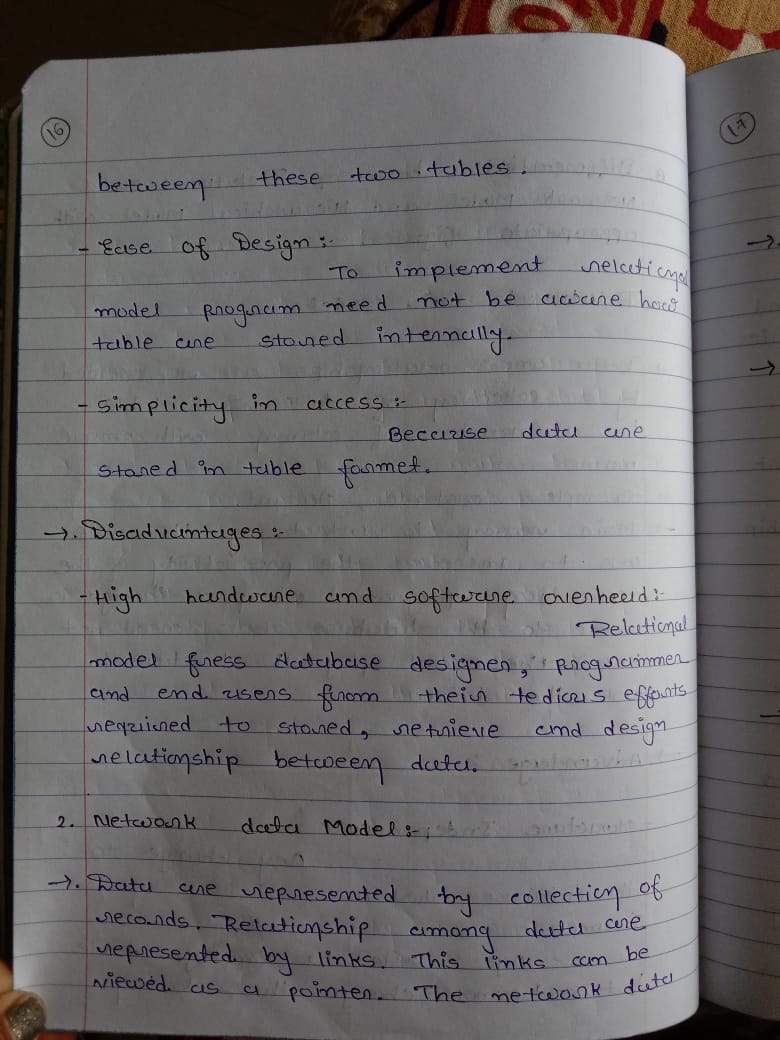 16
between these two tables.
- Ease of Design :-
To implement relational
model program need not be aware how
table are stored internally.
- Simplicity in access :-
Because data are
stored in table formet.
→. Disadvantages :-
- High hardware and software overheed :-
Relational
model fress database designer, programmer
and end users from their tedious efforts
required to stored, retrieve and design
relationship between data.
2. Network data Model :-
→. Data are represented by collection of
records. Relationship among data are
represented by links. This links can be
viewed as a pointer. The network data
17
→
→